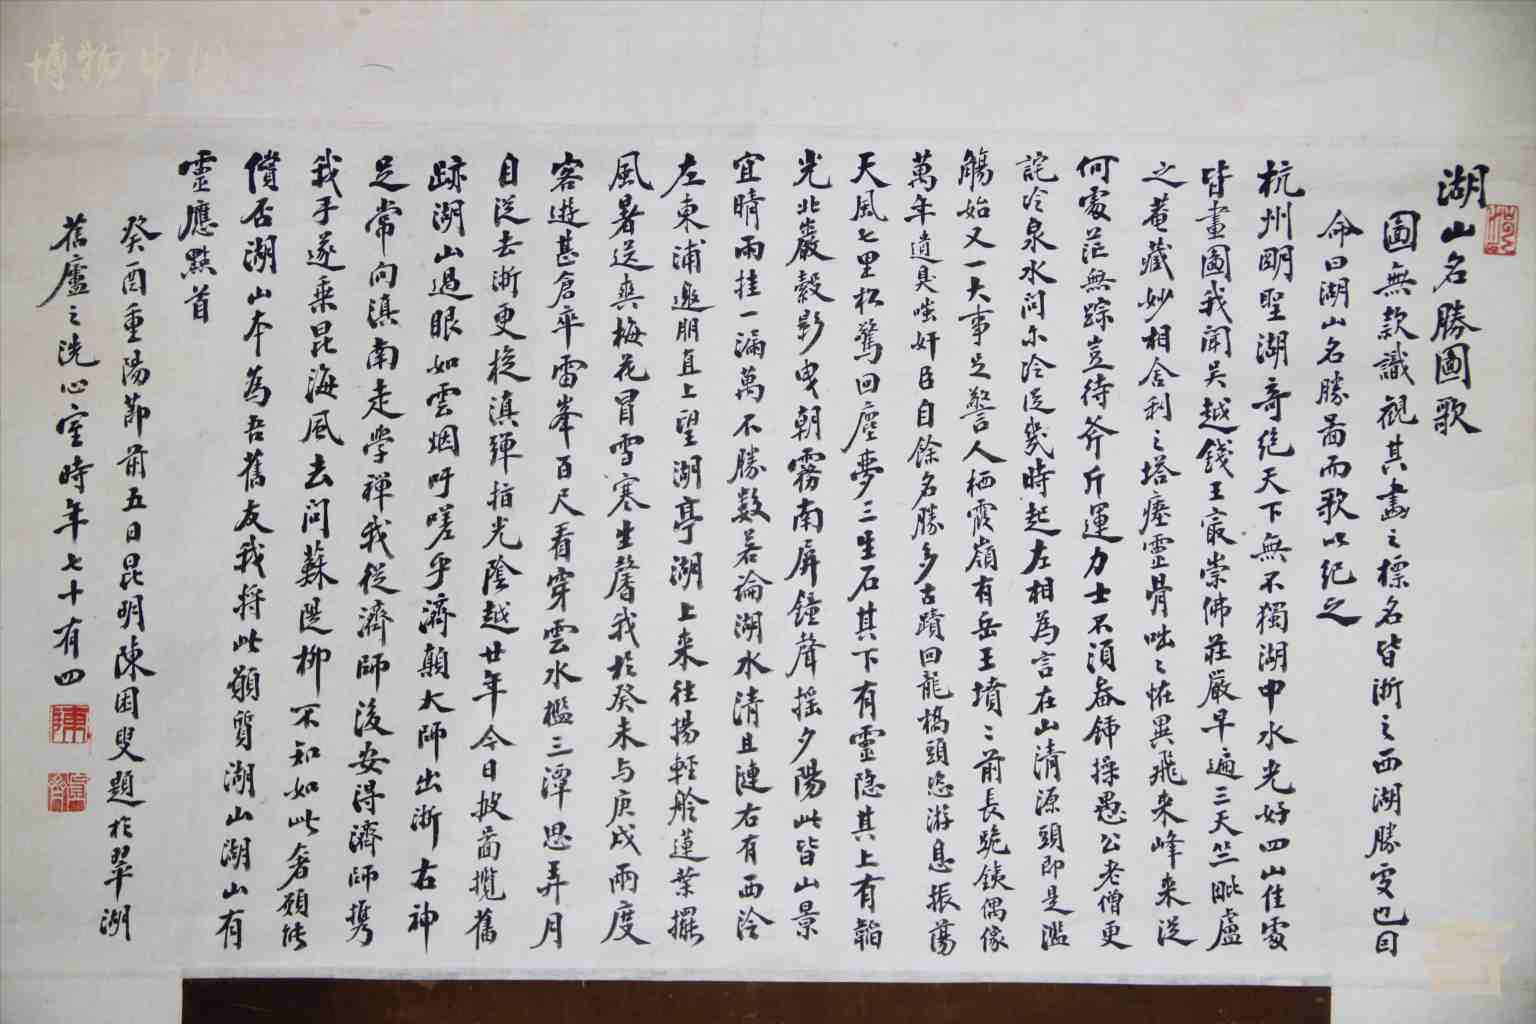 湖山名勝圖歌
圖無款識觀其畫之標名皆浙之西湖勝處也因
命曰湖山名勝圖而歌以紀之
杭州明聖湖奇絕天下無不獨湖中水光好四山佳處
皆畫圖我聞吳越錢王家崇佛莊嚴早遍三天竺毗盧
之菴藏妙相舍利之塔瘞靈骨咄咄怪異飛來峰來從
何處茫無踪豈待斧斤運力士不須畚鍤操愚公老僧更
詫冷泉水問尔冷從幾時起左相為言在山清源頭即是濫
觴始又一大事足警人栖霞嶺有岳王墳墳前長跪鐵偶像
萬年遺臭嗤奸臣自餘名勝多古蹟回龍橋頭恣游息振蕩
天風七里松驚回塵夢三生石其下有靈隱其上有韜
光北巖縠影曳朝霧南屏鐘聲搖夕陽此皆山景
宜晴雨挂一漏萬不勝數若論湖水清且漣右有西泠
左東浦邀朋直上望湖亭湖上來往揚輕舲蓮葉擺
風暑送爽梅花冒雪寒生馨我於癸未与庚戌兩度
客遊甚倉卒雷峯百尺看穿雲水檻三潭思弄月
自從去浙更旋滇彈指光陰越廿年今日披圖攬舊
跡湖山過眼如雲烟吁嗟乎濟顛大師出浙右神
足常向滇南走學禪我從濟師後安得濟師攜
我手遂乘昆海風去問蘇堤柳不知如此奢願能
償否湖山本為吾舊友我將此願質湖山湖山有
靈應點首
癸酉重陽節前五日昆明陳困叟題於翠湖
舊廬之洗心室時年七十有四
博物中州